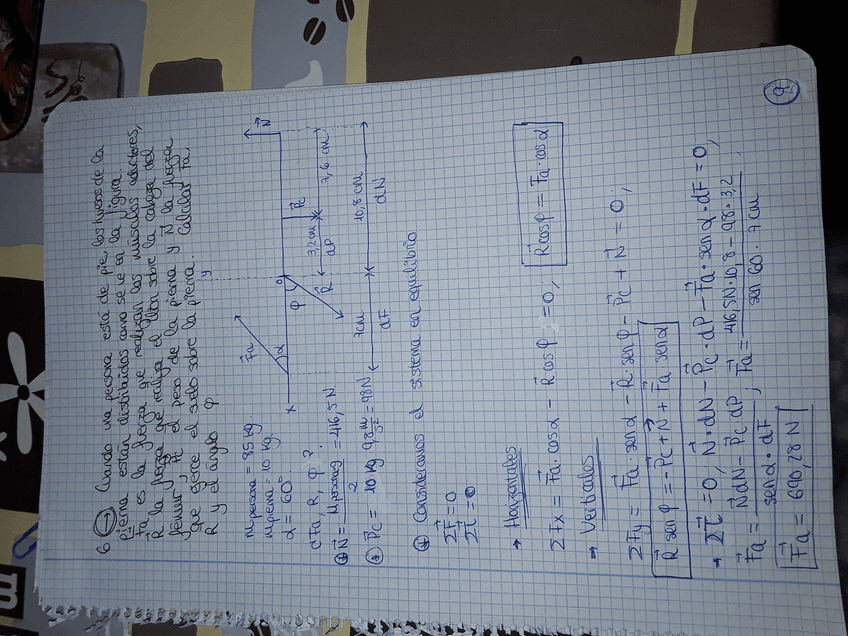 6 - Cuando una persona está de pie, las fuerzas de la
pierna están distribuidas como se ve en la figura.
Fa es la fuerza que realizan los músculos aductores,
R la fuerza que realiza el sobre la cabeza del
femur, Pc el peso de la pierna y N la fuerza
que ejerce el suelo sobre la pierna. Calcular Fa,
R y el ángulo φ
m persona = 85 kg
m pierna = 10 kg.
α = 60°.
¿Fa, R, φ?
N = M persona g / 2 = 416,5 N.
Pc = 10 kg 9,8 m/s² = 98 N
x
y
Fa
α
φ
0
R
Pc
N
3,2 cm
dP
7,6 cm
7 cm
dF
10,8 cm
dN
Consideramos el sistema en equilibrio
ΣF = 0
Στ = 0
→ Horizontales
ΣFx = Fa · cos α - R cos φ = 0; R cos φ = Fa · cos α
→ Verticales
ΣFy = Fa · sen α - R · sen φ - Pc + N = 0;
R sen φ = - Pc + N + Fa sen α
→ Στ = 0; N · dN - Pc · dP - Fa · sen α · dF = 0;
Fa = N dN - Pc dP / sen α · dF ; Fa = 416,5 N · 10,8 - 98 · 3,2 / sen 60 · 7 cm ;
Fa = 690,28 N
9
m